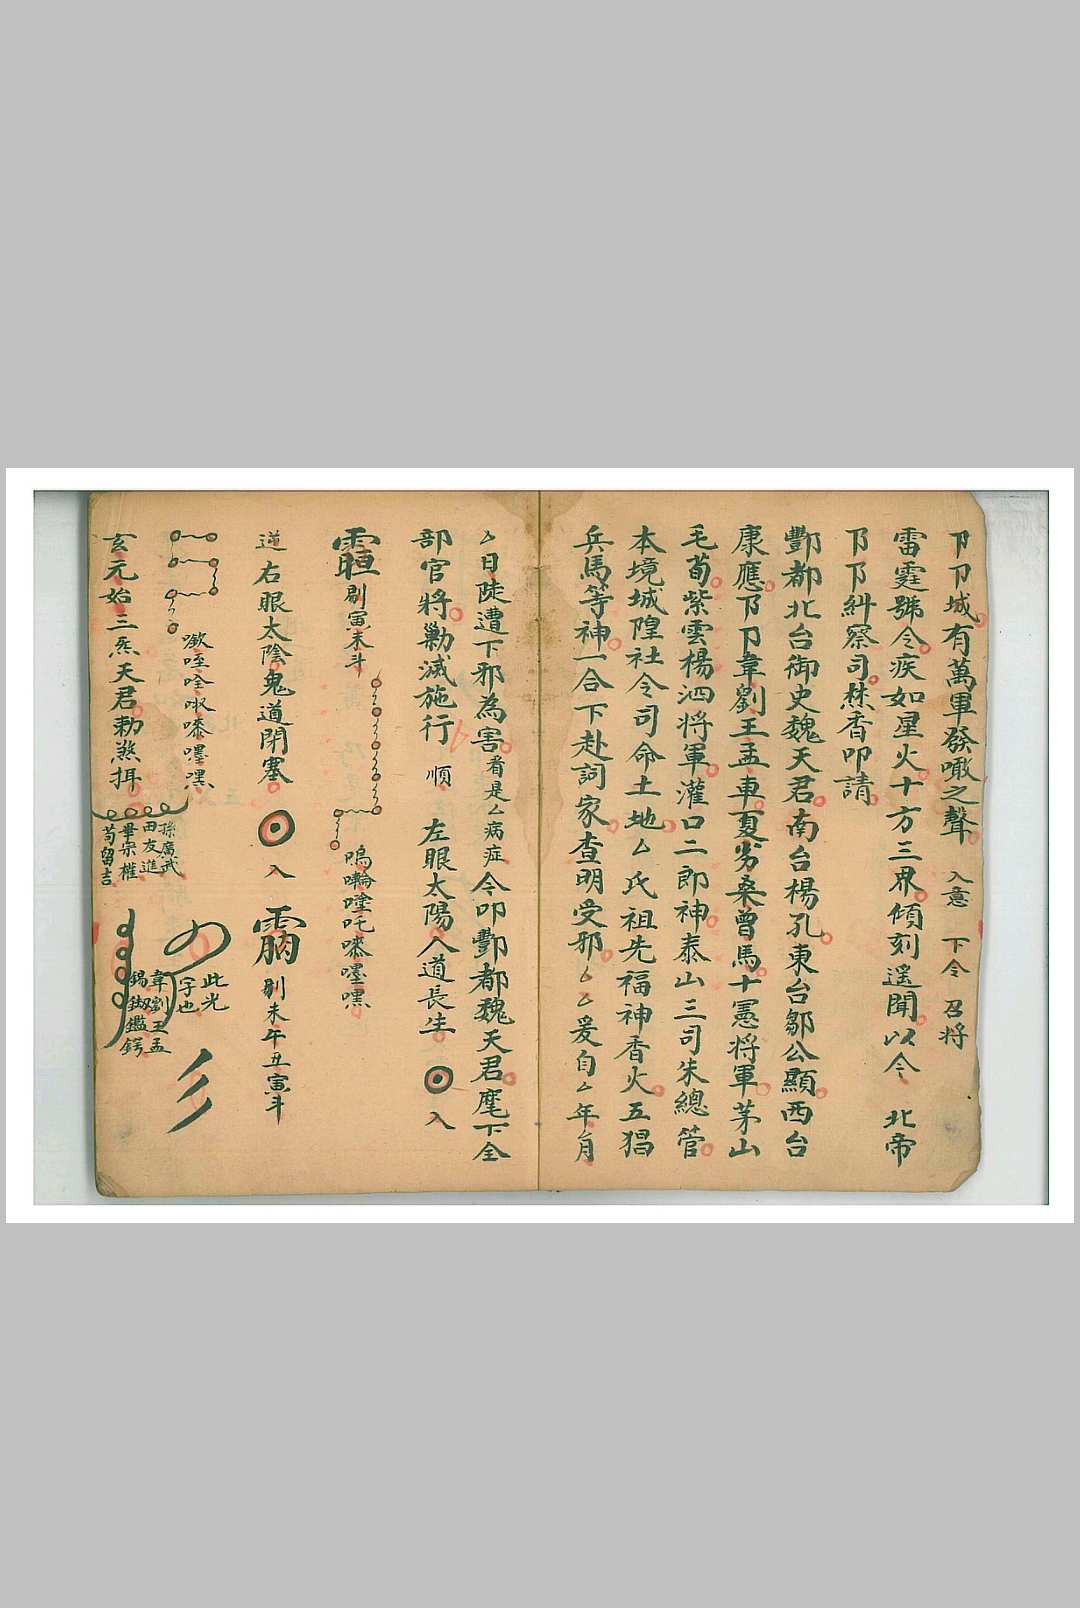 卩卩城有萬軍發噉之聲 入意 下令 召將
雷霆號令疾如星火十方三界傾刻遥聞以今 北帝
阝阝糾察司焚香叩請
酆都北台御史魏天君南台楊孔東台鄒公顯西台
康應阝卩韋劉王孟車夏劣桑曾馬十憲將軍茅山
毛荀紫雲楊泗將軍灌口二郎神泰山三司朱總管
本境城隍社令司命土地厶氏祖先福神香火五猖
兵馬等神一合下赴詞家查明受邪厶厶爰自厶年月
厶日陡遭下邪為害看是厶病症今叩酆都魏天君麾下全
部官將勦滅施行 順 左眼太陽人道長生 入
剔寅未斗
嗚囑𡄯吒嚟嘿嘿
道右眼太陰鬼道閉塞 入 剔未午丑寅斗
此光字也
玄元始三炁天君勅煞揖
孫廣武
田友進
畢宗權
苟留吉
韋劉王孟